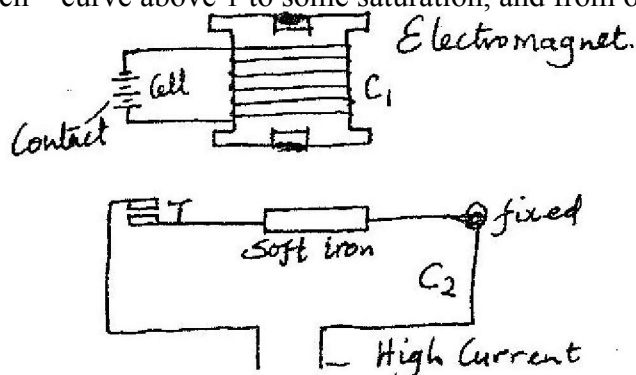 curve above 1 to some saturation, and from
Electromagnet.
Cell
C₁
Contact
T
fixed
Soft iron
C₂
High Current